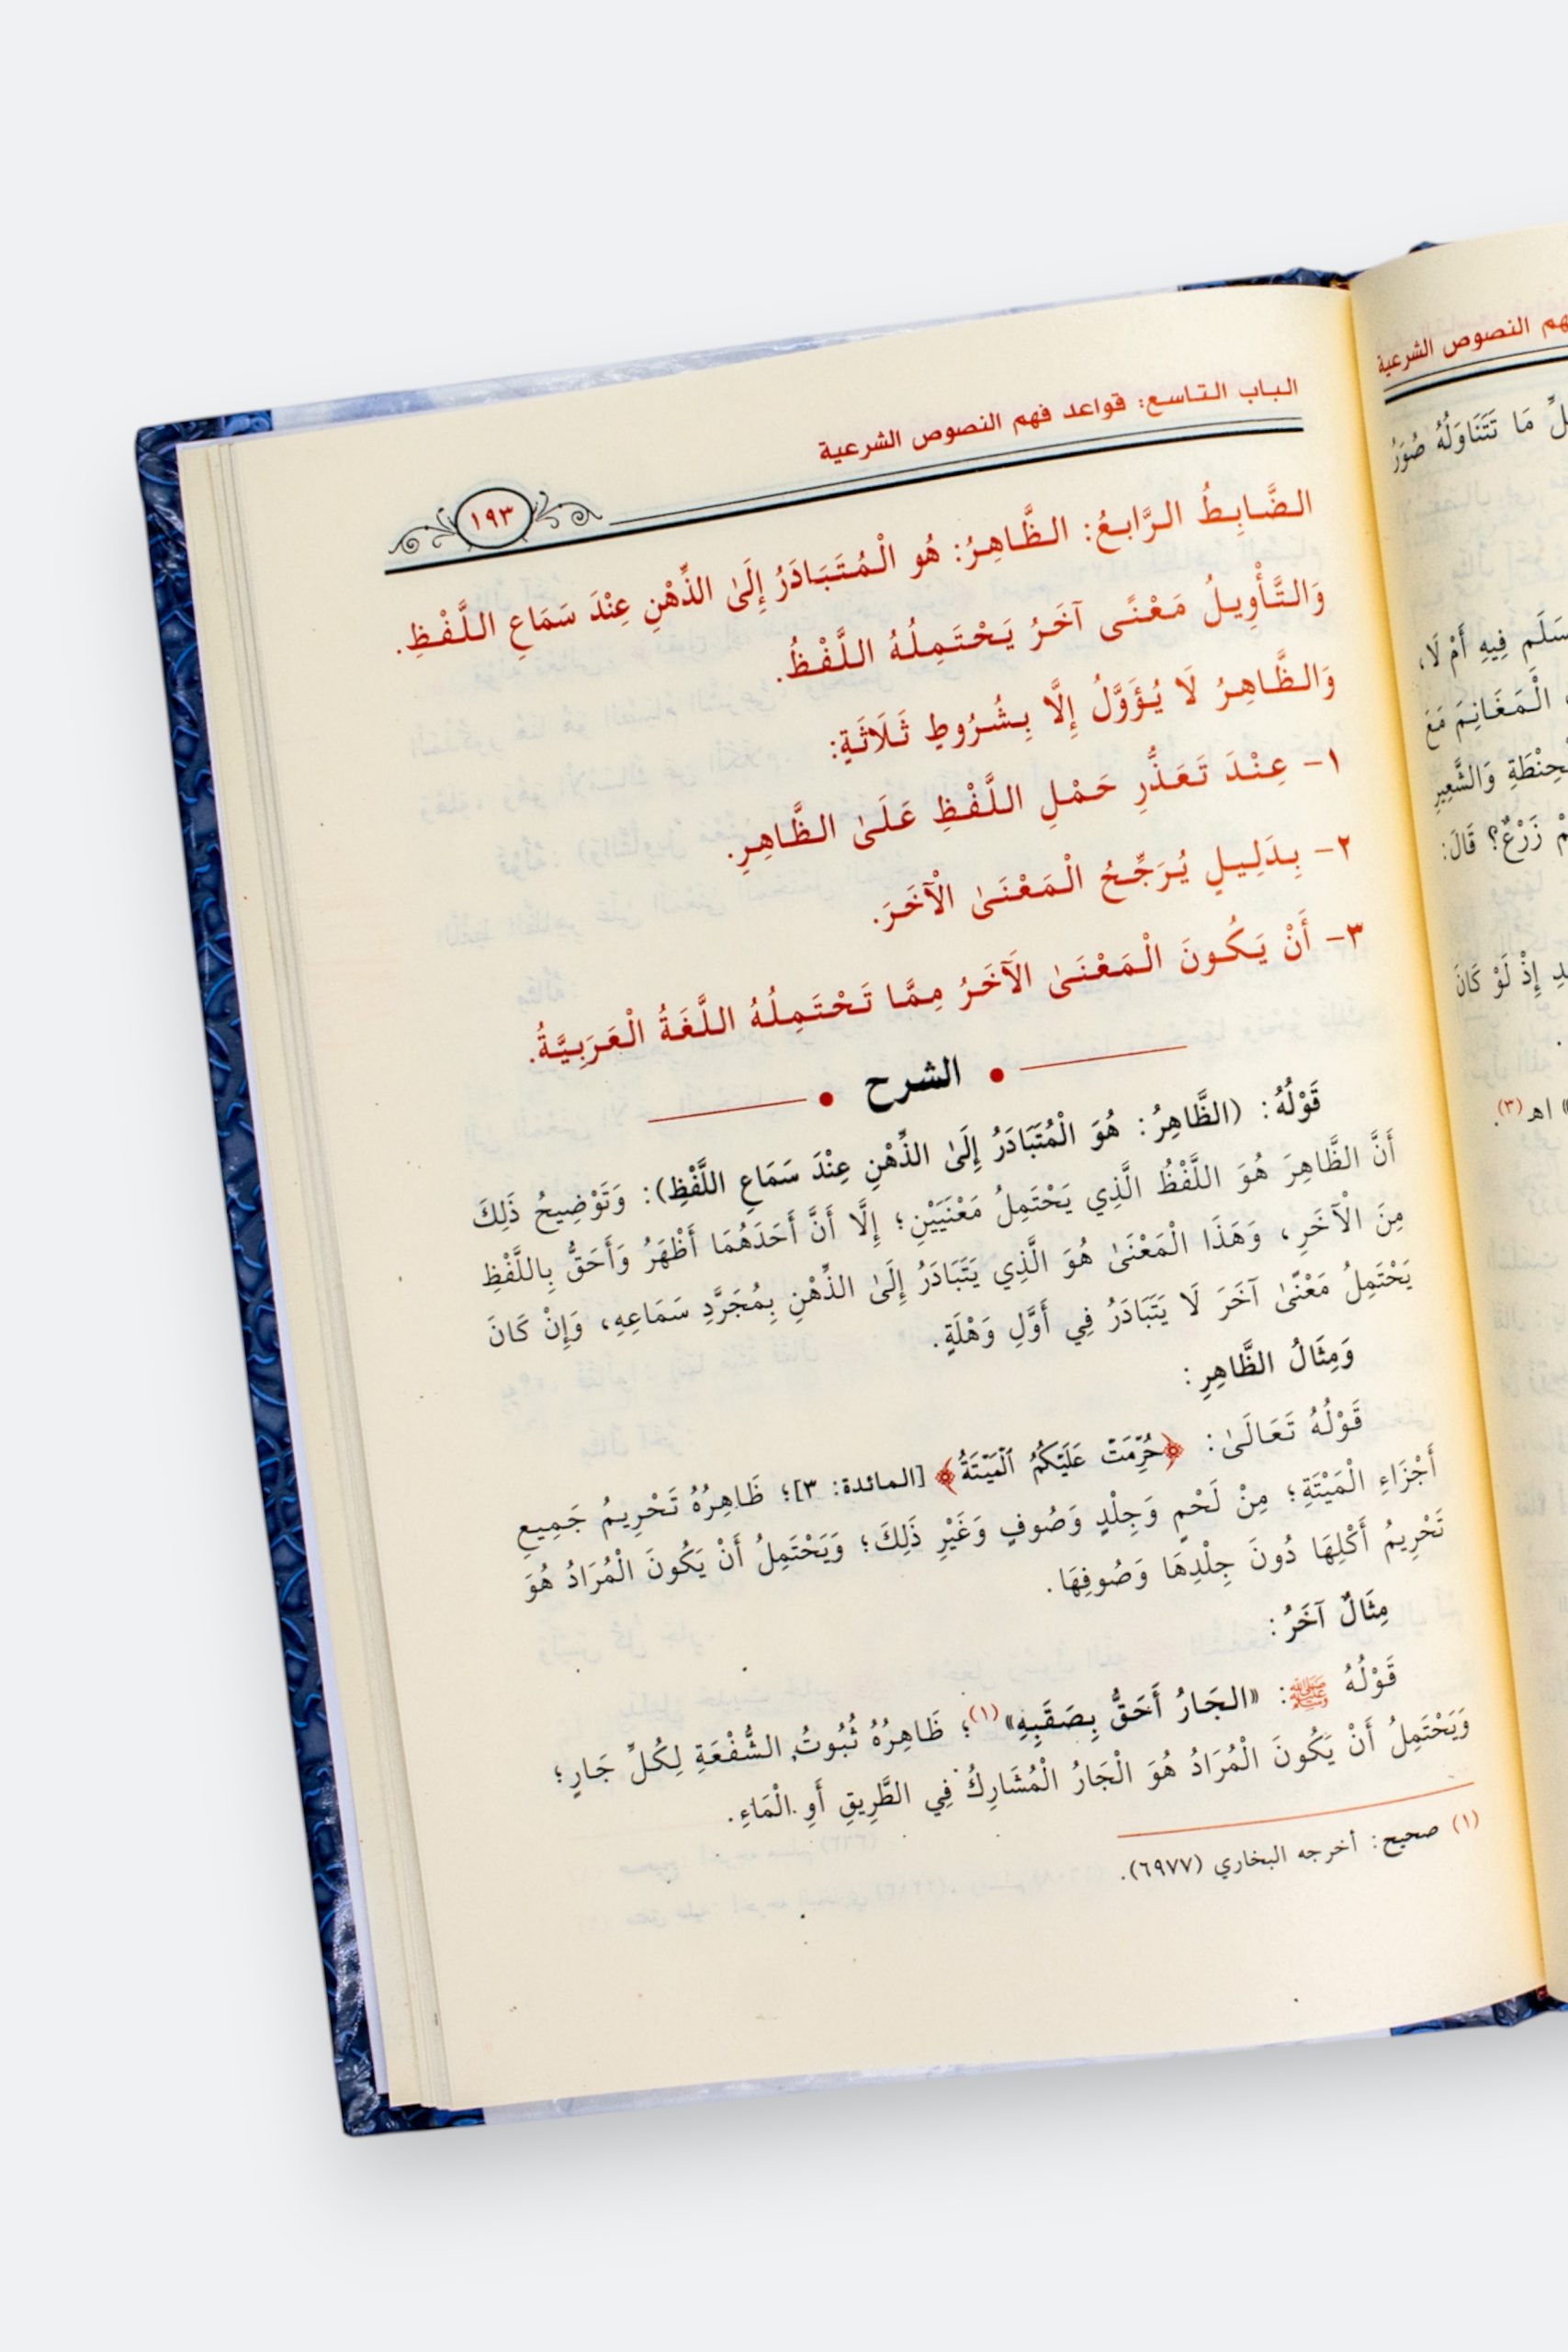 الباب التاسع: قواعد فهم النصوص الشرعية
١٩٣
الضَّابِطُ الرَّابِعُ: الظَّاهِرُ: هُو الْمُتَبَادَرُ إِلَىٰ الذِّهْنِ عِنْدَ سَمَاعِ اللَّفْظِ.
وَالتَّأْوِيلُ مَعْنًى آخَرُ يَحْتَمِلُهُ اللَّفْظُ.
وَالظَّاهِرُ لَا يُؤَوَّلُ إِلَّا بِشُرُوطٍ ثَلَاثَةٍ:
١- عِنْدَ تَعَذُّرِ حَمْلِ اللَّفْظِ عَلَىٰ الظَّاهِرِ.
٢- بِدَلِيلٍ يُرَجِّحُ الْمَعْنَىٰ الْآخَرَ.
٣- أَنْ يَكُونَ الْمَعْنَىٰ الَآخَرُ مِمَّا تَحْتَمِلُهُ اللَّغَةُ الْعَرَبِيَّةُ.
الشرح
قَوْلُهُ: (الظَّاهِرُ: هُوَ الْمُتَبَادَرُ إِلَىٰ الذِّهْنِ عِنْدَ سَمَاعِ اللَّفْظِ): وَتَوْضِيحُ ذَلِكَ
أَنَّ الظَّاهِرَ هُوَ اللَّفْظُ الَّذِي يَحْتَمِلُ مَعْنَيَيْنِ؛ إِلَّا أَنَّ أَحَدَهُمَا أَظْهَرُ وَأَحَقُّ بِاللَّفْظِ
مِنَ الْآخَرِ، وَهَذَا الْمَعْنَىٰ هُوَ الَّذِي يَتَبَادَرُ إِلَىٰ الذِّهْنِ بِمُجَرَّدِ سَمَاعِهِ، وَإِنْ كَانَ
يَحْتَمِلُ مَعْنًىٰ آخَرَ لَا يَتَبَادَرُ فِي أَوَّلِ وَهْلَةٍ.
وَمِثَالُ الظَّاهِرِ:
قَوْلُهُ تَعَالَىٰ: ﴿حُرِّمَتْ عَلَيْكُمُ ٱلْمَيْتَةُ﴾ [المائدة: ٣]؛ ظَاهِرُهُ تَحْرِيمُ جَمِيعِ
أَجْزَاءِ الْمَيْتَةِ؛ مِنْ لَحْمٍ وَجِلْدٍ وَصُوفٍ وَغَيْرِ ذَلِكَ؛ وَيَحْتَمِلُ أَنْ يَكُونَ الْمُرَادُ هُوَ
تَحْرِيمُ أَكْلِهَا دُونَ جِلْدِهَا وَصُوفِهَا.
مِثَالٌ آخَرُ:
قَوْلُهُ ﷺ: «الجَارُ أَحَقُّ بِصَقَبِهِ»(١)؛ ظَاهِرُهُ ثُبُوتُ الشُّفْعَةِ لِكُلِّ جَارٍ؛
وَيَحْتَمِلُ أَنْ يَكُونَ الْمُرَادُ هُوَ الْجَارُ الْمُشَارِكُ فِي الطَّرِيقِ أَوِ الْمَاءِ.
(١) صحيح: أخرجه البخاري (٦٩٧٧).
النصوص الشرعية
مَا تَتَنَاوَلُهُ صُوَرُ
فِيهِ أَمْ لَا،
الْمَغَانِمَ مَعَ
وَالشَّعِيرِ
زَرْعٌ؟ قَالَ:
إِذْ لَوْ كَانَ
اهـ(٣).